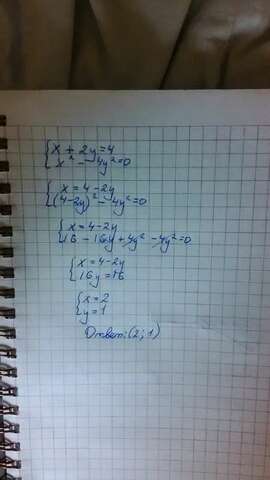 {x + 2y = 4
x² - 4y² = 0
{x = 4 - 2y
(4-2y)² - 4y² = 0
{x = 4 - 2y
16 - 16y + 4y² - 4y² = 0
{x = 4 - 2y
16y = 16
{x = 2
y = 1
Ответ: (2; 1)